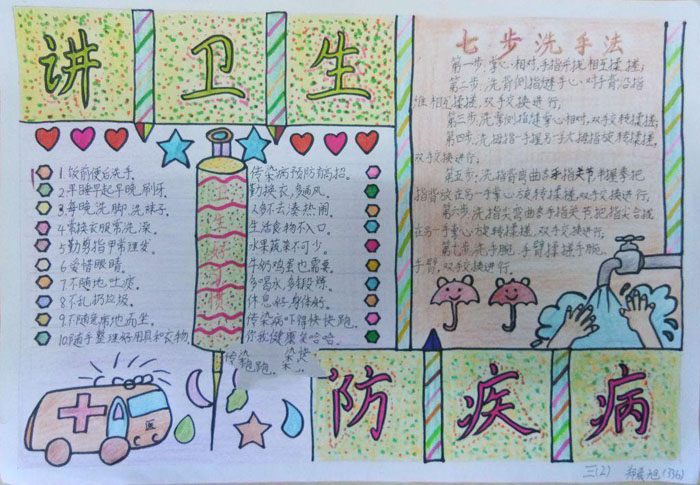 讲卫生
七步洗手法
第一步,掌心相对,手指并拢,相互揉搓;
第二步,洗背侧指缝手心对手背沿指
缝相互揉搓,双手交换进行;
第三步,洗掌侧指缝掌心相对,双手交
揉搓;
第四步,洗拇指一手握另一手大拇指旋转揉搓,
双手交换进行;
第五步,洗指背弯曲各手指关节半握拳把
指背放在另一手掌心旋转揉搓,双手交换进行;
第六步,洗指尖弯曲各手指关节把指尖合拢
在另一手掌心旋转揉搓,双手交换进行;
第七步,洗手腕、手臂揉搓手腕、
手臂,双手交换进行。
1.饭前便后洗手。
2.早睡早起早晚刷牙。
3.每晚洗脚、洗袜子。
4.常换衣服常洗澡。
5.勤剪指甲常理发。
6.爱惜眼睛。
7.不随地吐痰。
8.不乱扔垃圾。
9.不随意席地而坐。
10.随手整理好用具和衣物。
卫生好习惯
传染病预防有招。
勤换衣,多通风。
人多不去凑热闹。
生活食物不入口。
水果蔬菜不可少。
牛奶鸡蛋也需要。
多喝水,多锻炼。
休息好,身体好。
传染病吓得快快跑。
你我健康笑哈哈。
医
防疾病
三(2)